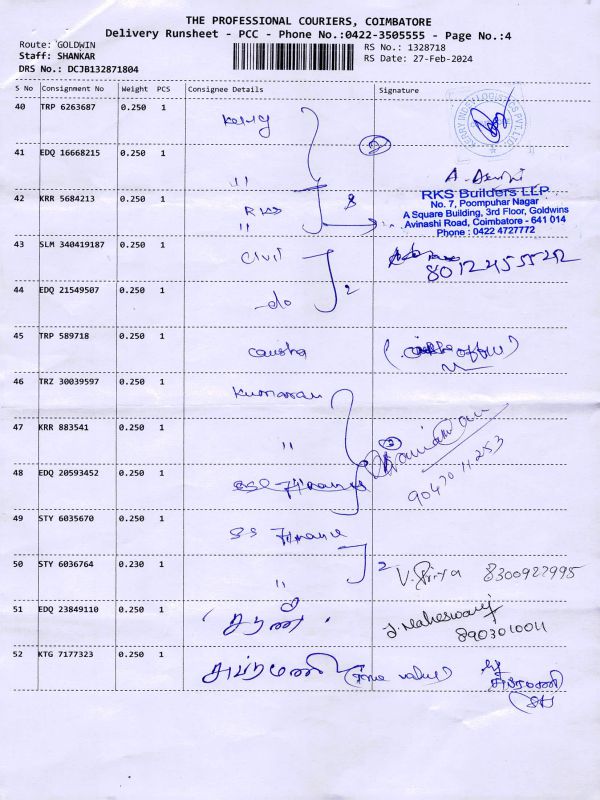 THE PROFESSIONAL COURIERS, COIMBATORE
Delivery Runsheet - PCC - Phone No.:0422-3505555 - Page No.:4
Route: GOLDWIN
RS No.: 1328718
Staff: SHANKAR
RS Date: 27-Feb-2024
DRS No.: DCJB132871804
S No Consignment No Weight PCS Consignee Details Signature
40 TRP 6263687 0.250 1 Kerry
41 EDQ 16668215 0.250 1 "
A.
42 KRR 5684213 0.250 1 RKS 8
"
RKS Builders LLP
No. 7, Poompuhar Nagar
A Square Building, 3rd Floor, Goldwins
Avinashi Road, Coimbatore - 641 014
Phone : 0422 4727772
43 SLM 340419187 0.250 1 Civil
44 EDQ 21549507 0.250 1 -do 2
45 TRP 589718 0.250 1
46 TRZ 30039597 0.250 1 Kumaran
47 KRR 883541 0.250 1 "
48 EDQ 20593452 0.250 1
49 STY 6035670 0.250 1 SS Finance
50 STY 6036764 0.230 1 " 2 V. Priya 8300922995
51 EDQ 23849110 0.250 1 சரண் J. Maheswari
8903010011
52 KTG 7177323 0.250 1 சுப்ரமணி சுப்ரமணி